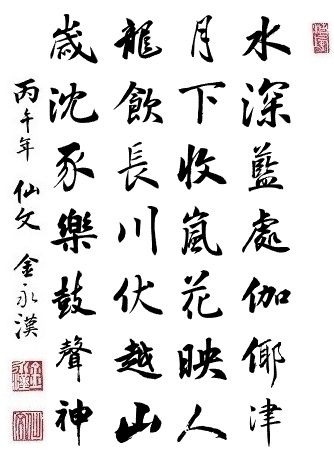 水深藍處伽倻津
月下收嵐花映人
龍飮長川伏越山
歲沈豕樂鼓聲神
丙午年 仙文 金永漢